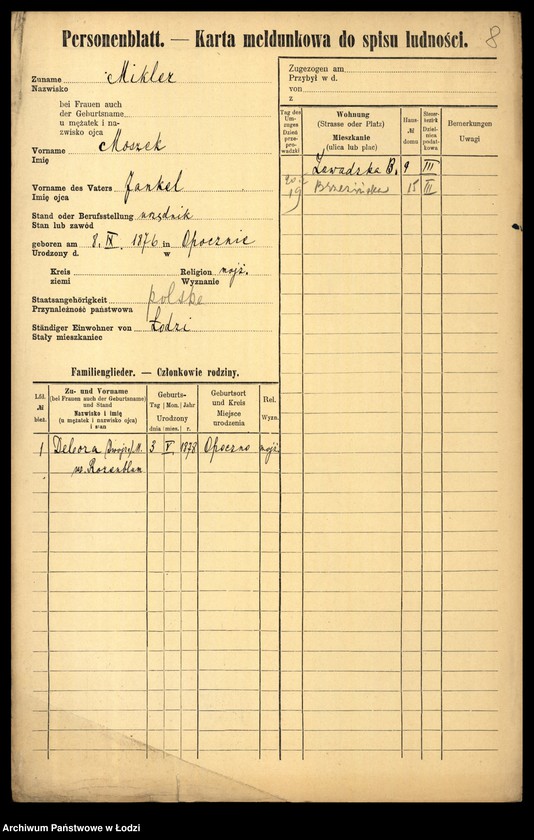 Personenblatt. — Karta meldunkowa do spisu ludności.
8
Zuname Mikler
Nazwisko
bei Frauen auch
der Geburtsname
u mężatek i na-
zwisko ojca
Vorname Moszek
Imię
Vorname des Vaters Jankel
Imię ojca
Stand oder Berufsstellung urzędnik
Stan lub zawód
geboren am 8. IX. 1876 in Opocznie
Urodzony d. w
Kreis Religion mojż.
ziemi Wyznanie
Staatsangehörigkeit polskie
Przynależność państwowa
Ständiger Einwohner von Łodzi
Stały mieszkaniec
Zugezogen am
Przybył w d.
von
z
Tag des Um-zuges Dzień prze-prowadzki
Wohnung (Strasse oder Platz) Mieszkanie (ulica lub plac)
Haus-№ domu
Steuer-bezirk Dzielnica podatkowa
Bemerkungen Uwagi
Zawadzka B. 9 III
19 Brzezińska 15 III
Familienglieder. — Członkowie rodziny.
Lfd. № bież.
Zu- und Vorname (bei Frauen auch der Geburtsname) und Stand Nazwisko i imię (u mężatek i nazwisko ojca) i stan
Geburts- Tag Mon. Jahr Urodzony dnia mies. r.
Geburtsort und Kreis Miejsce urodzenia
Rel. Wyzn.
1 Debora 3 V 1878 Opoczno mojż.
Rozenblum
Archiwum Państwowe w Łodzi